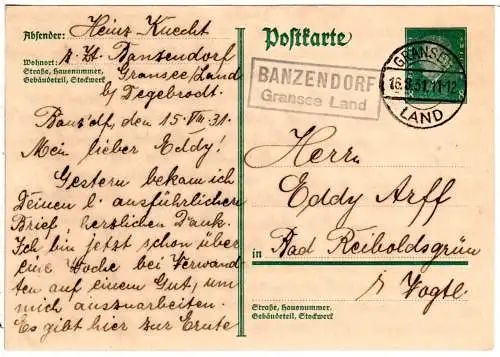 Absender: Heinz Knecht
Wohnort: z. Zt. Banzendorf
Straße, Hausnummer,
Gebäudeteil, Stockwerk
Gransee/Land
b/ Tegebrodt.
Banz'df, den 15. VIII. 31.
Mein lieber Eddy!
Gestern bekam ich
Deinen l. ausführlichen
Brief, herzlichen Dank.
Ich bin jetzt schon über
eine Woche bei Verwand-
ten auf einem Gut, um
mich auszuarbeiten.
Es gibt hier zur Ernte
Postkarte
BANZENDORF
Gransee Land
GRANSEE
16.8.31.11-12
LAND
Herrn
Eddy Arff
in Bad Reiboldsgrün
i/ Vogtl.
Straße, Hausnummer,
Gebäudeteil, Stockwerk